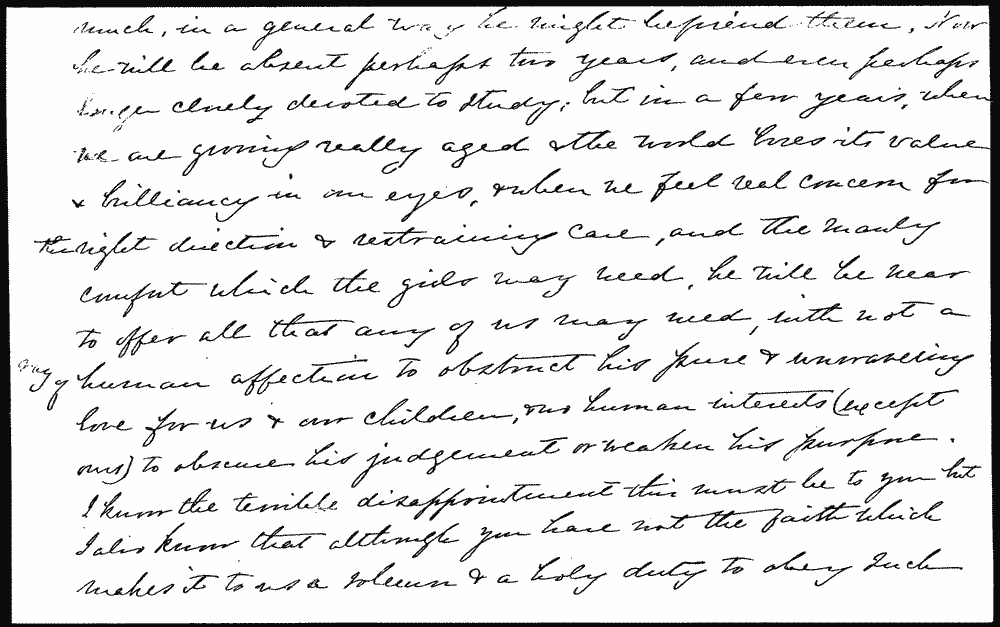 much, in a general way he might befriend them. Now
he will be absent perhaps two years, and even perhaps
longer closely devoted to study; but in a few years, when
we are growing really aged & the world loses its value
& brilliancy in our eyes, & when we feel real concern for
the right direction & restraining care, and the manly
comfort which the girls may need, he will be near
to offer all that any of us may need, with not a
ray of human affection to obstruct his pure & unwavering
love for us & our children, & no human interests (except
ours) to obscure his judgement or weaken his purpose.
I know the terrible disappointment this must be to you but
I also know that although you have not the faith which
makes it to us a solemn & a holy duty to obey such